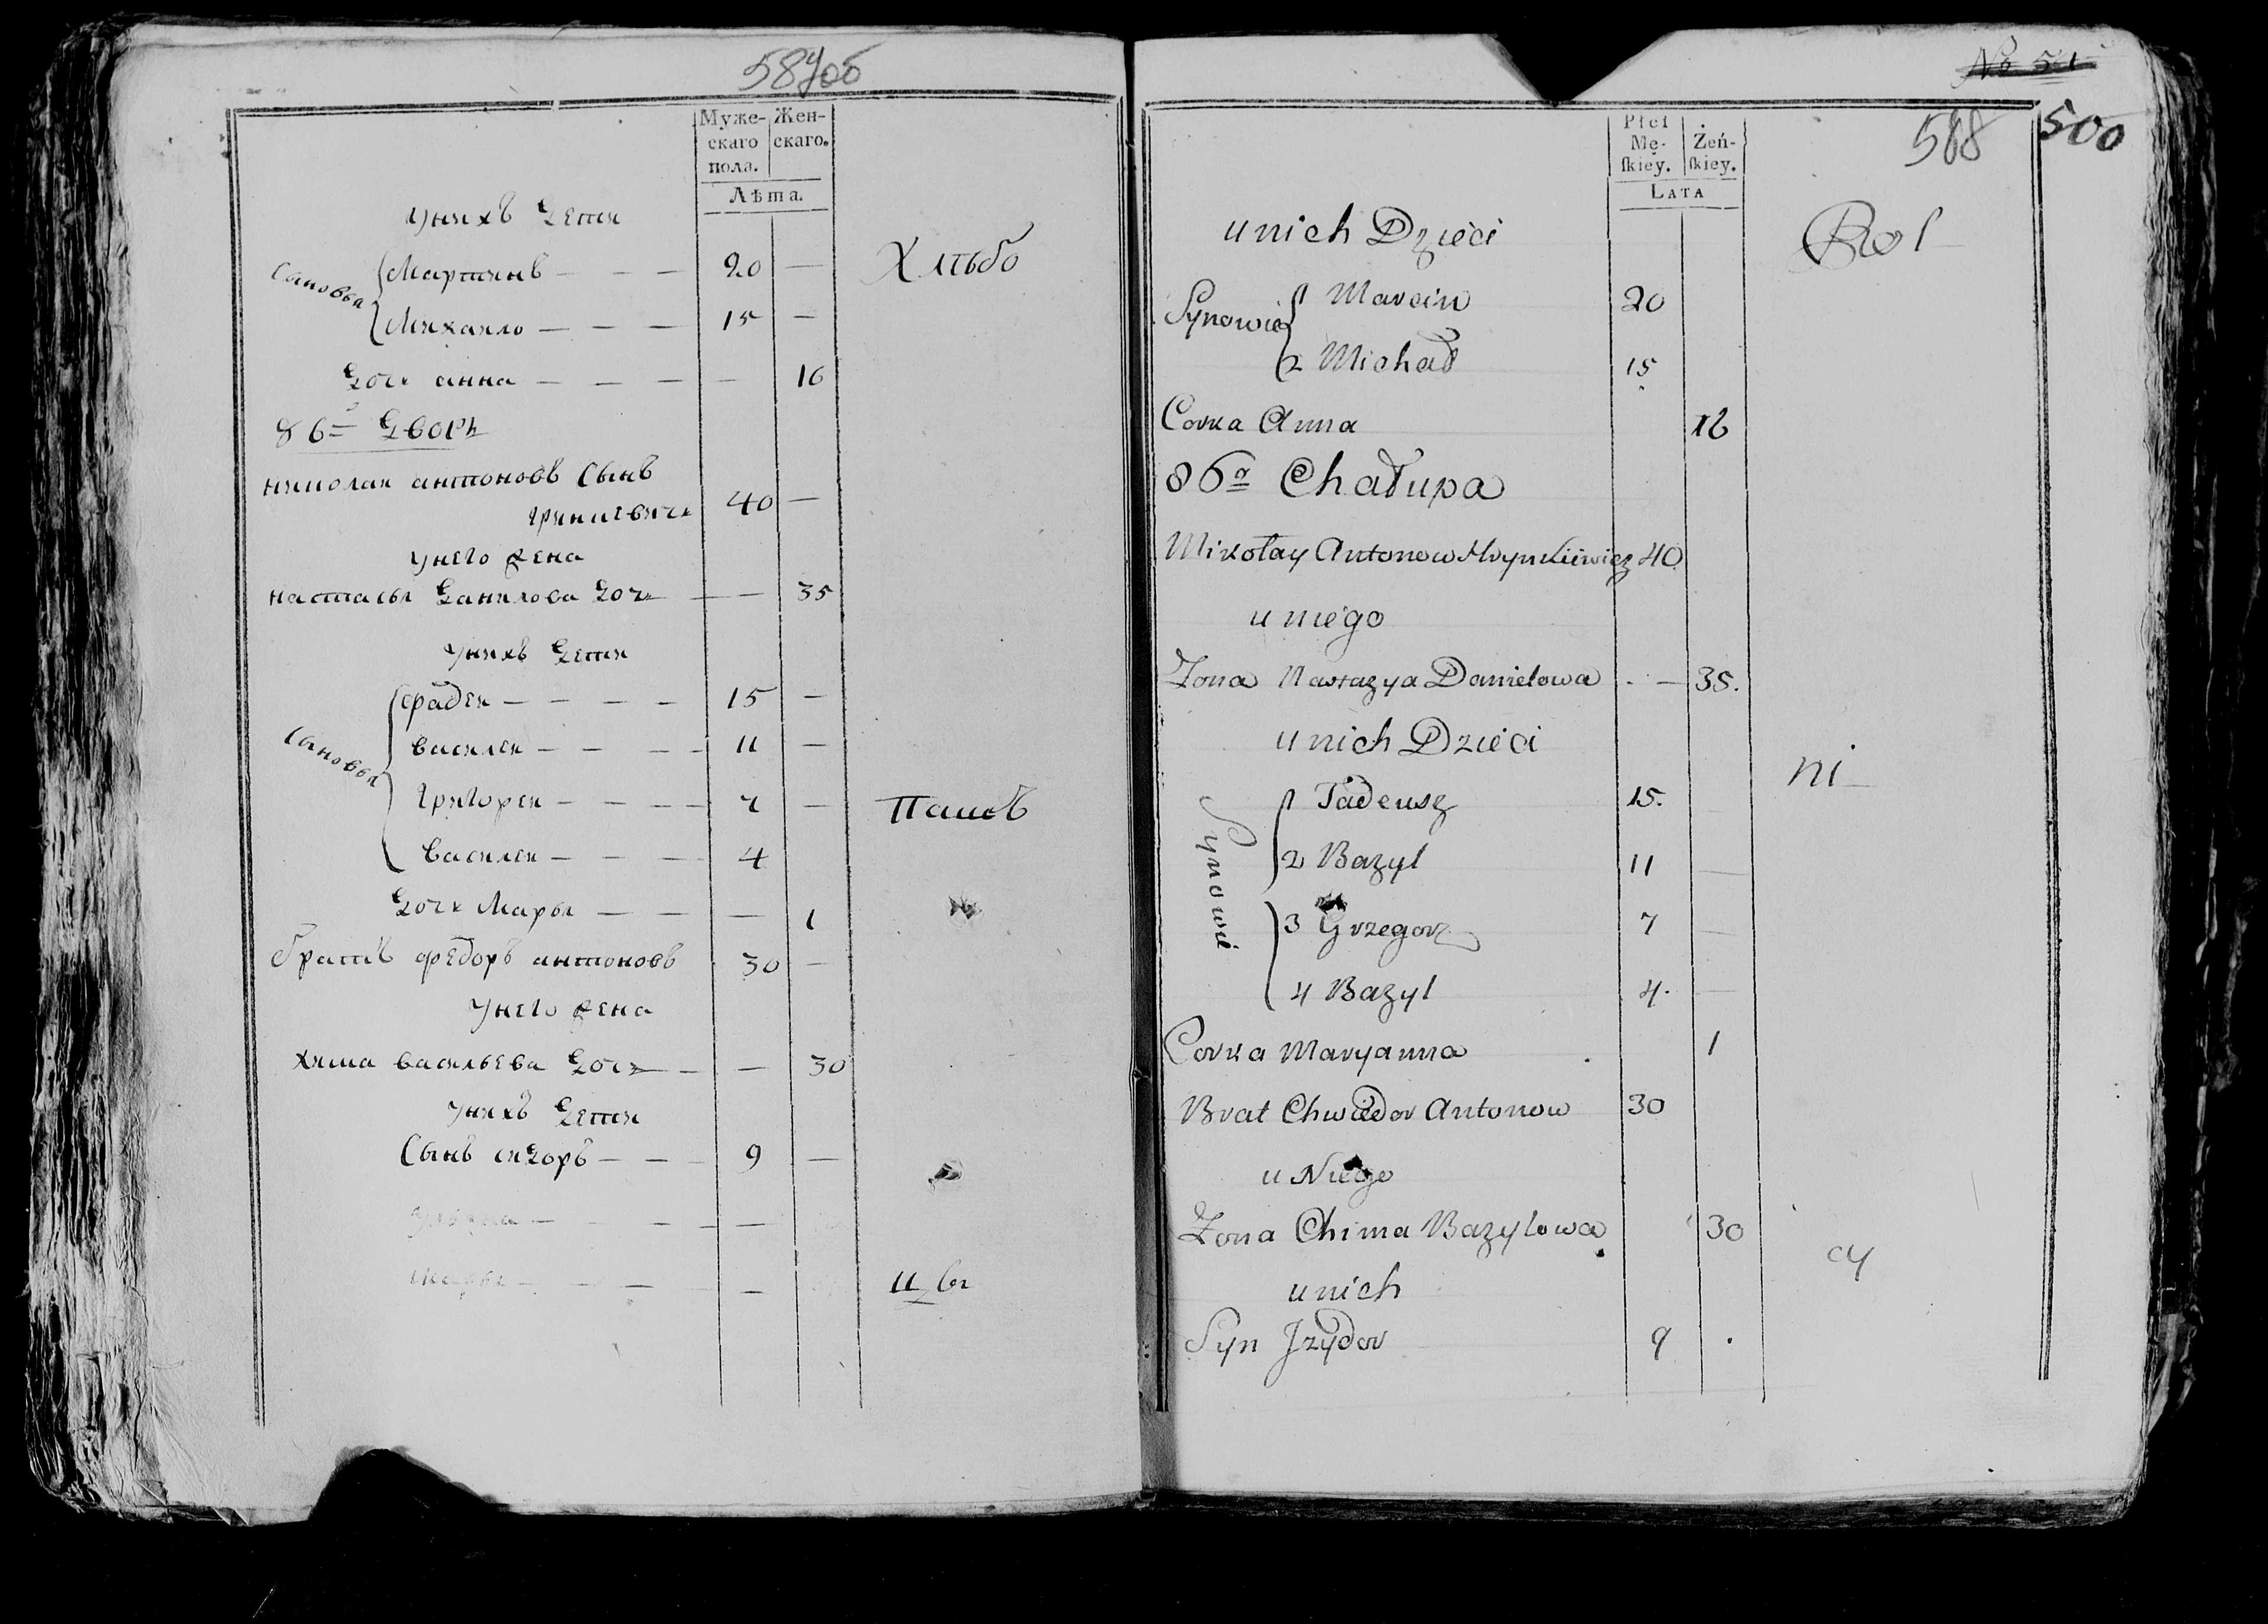 587об
Муже-
скаго
пола.
Жен-
скаго.
Лѣта.
унихъ дети
Сыновья
Мартинъ — — — 20 —
Михаило — — — 15 —
дочь анна — — — — 16
86й дворъ
николаи антоновъ сынъ
гринкевичь 40 —
унего жена
настасья данилова дочь — — 35
унихъ дети
Сыновья
фадеи — — — — 15 —
василеи — — — — 11 —
григореи — — — — 7 —
василеи — — — — 4
дочь Марья — — — 1
братъ федоръ антоновъ 30 —
унего жена
хима васильева дочь — — 30
унихъ дети
Сынъ сидоръ — — — 9 —
Хлѣбо
Пашеъ
цы
№ 51
500
588
Płci
Mę-
skiey.
Żeń-
skiey.
LATA
unich Dzieci
Synowie
1 Marcin 20
2 Michał 15
Corka Anna 16
86a Chałupa
Mikołay Antonow Hrynkiewicz 40
u niego
Zona Nastazya Danielowa - — 35.
unich Dzieci
Synowie
1 Tadeusz 15.
2 Bazyl 11 —
3 Grzegorz 7 —
4 Bazyl 4. —
Corka Maryanna 1
Brat Chwiedor Antonow 30
u Niego
Zona Chima Bazylowa 30
unich
Syn Jzydor 9 .
Rol-
ni-
cy